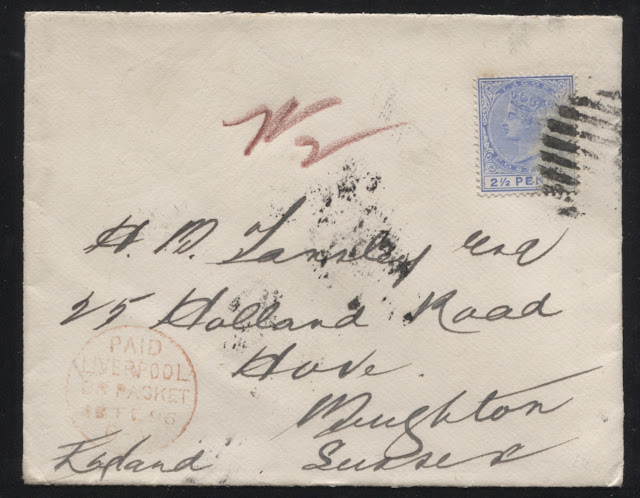 LAGOS
2½ PEN
H. D. Tansley Esq
25 Holland Road
Hove
Brighton
Sussex
England
PAID
LIVERPOOL
BR PACKET
18 FE 96